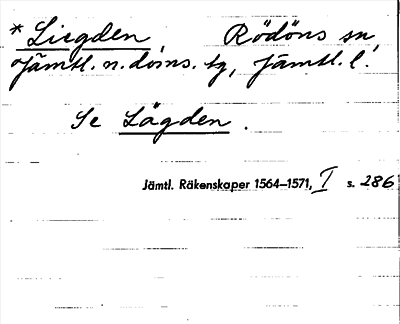 * Liegden Rödöns sn
Jämtl. n. doms. tg, Jämtl. l.
Se Lägden.
Jämtl. Räkenskaper 1564–1571, I s. 286